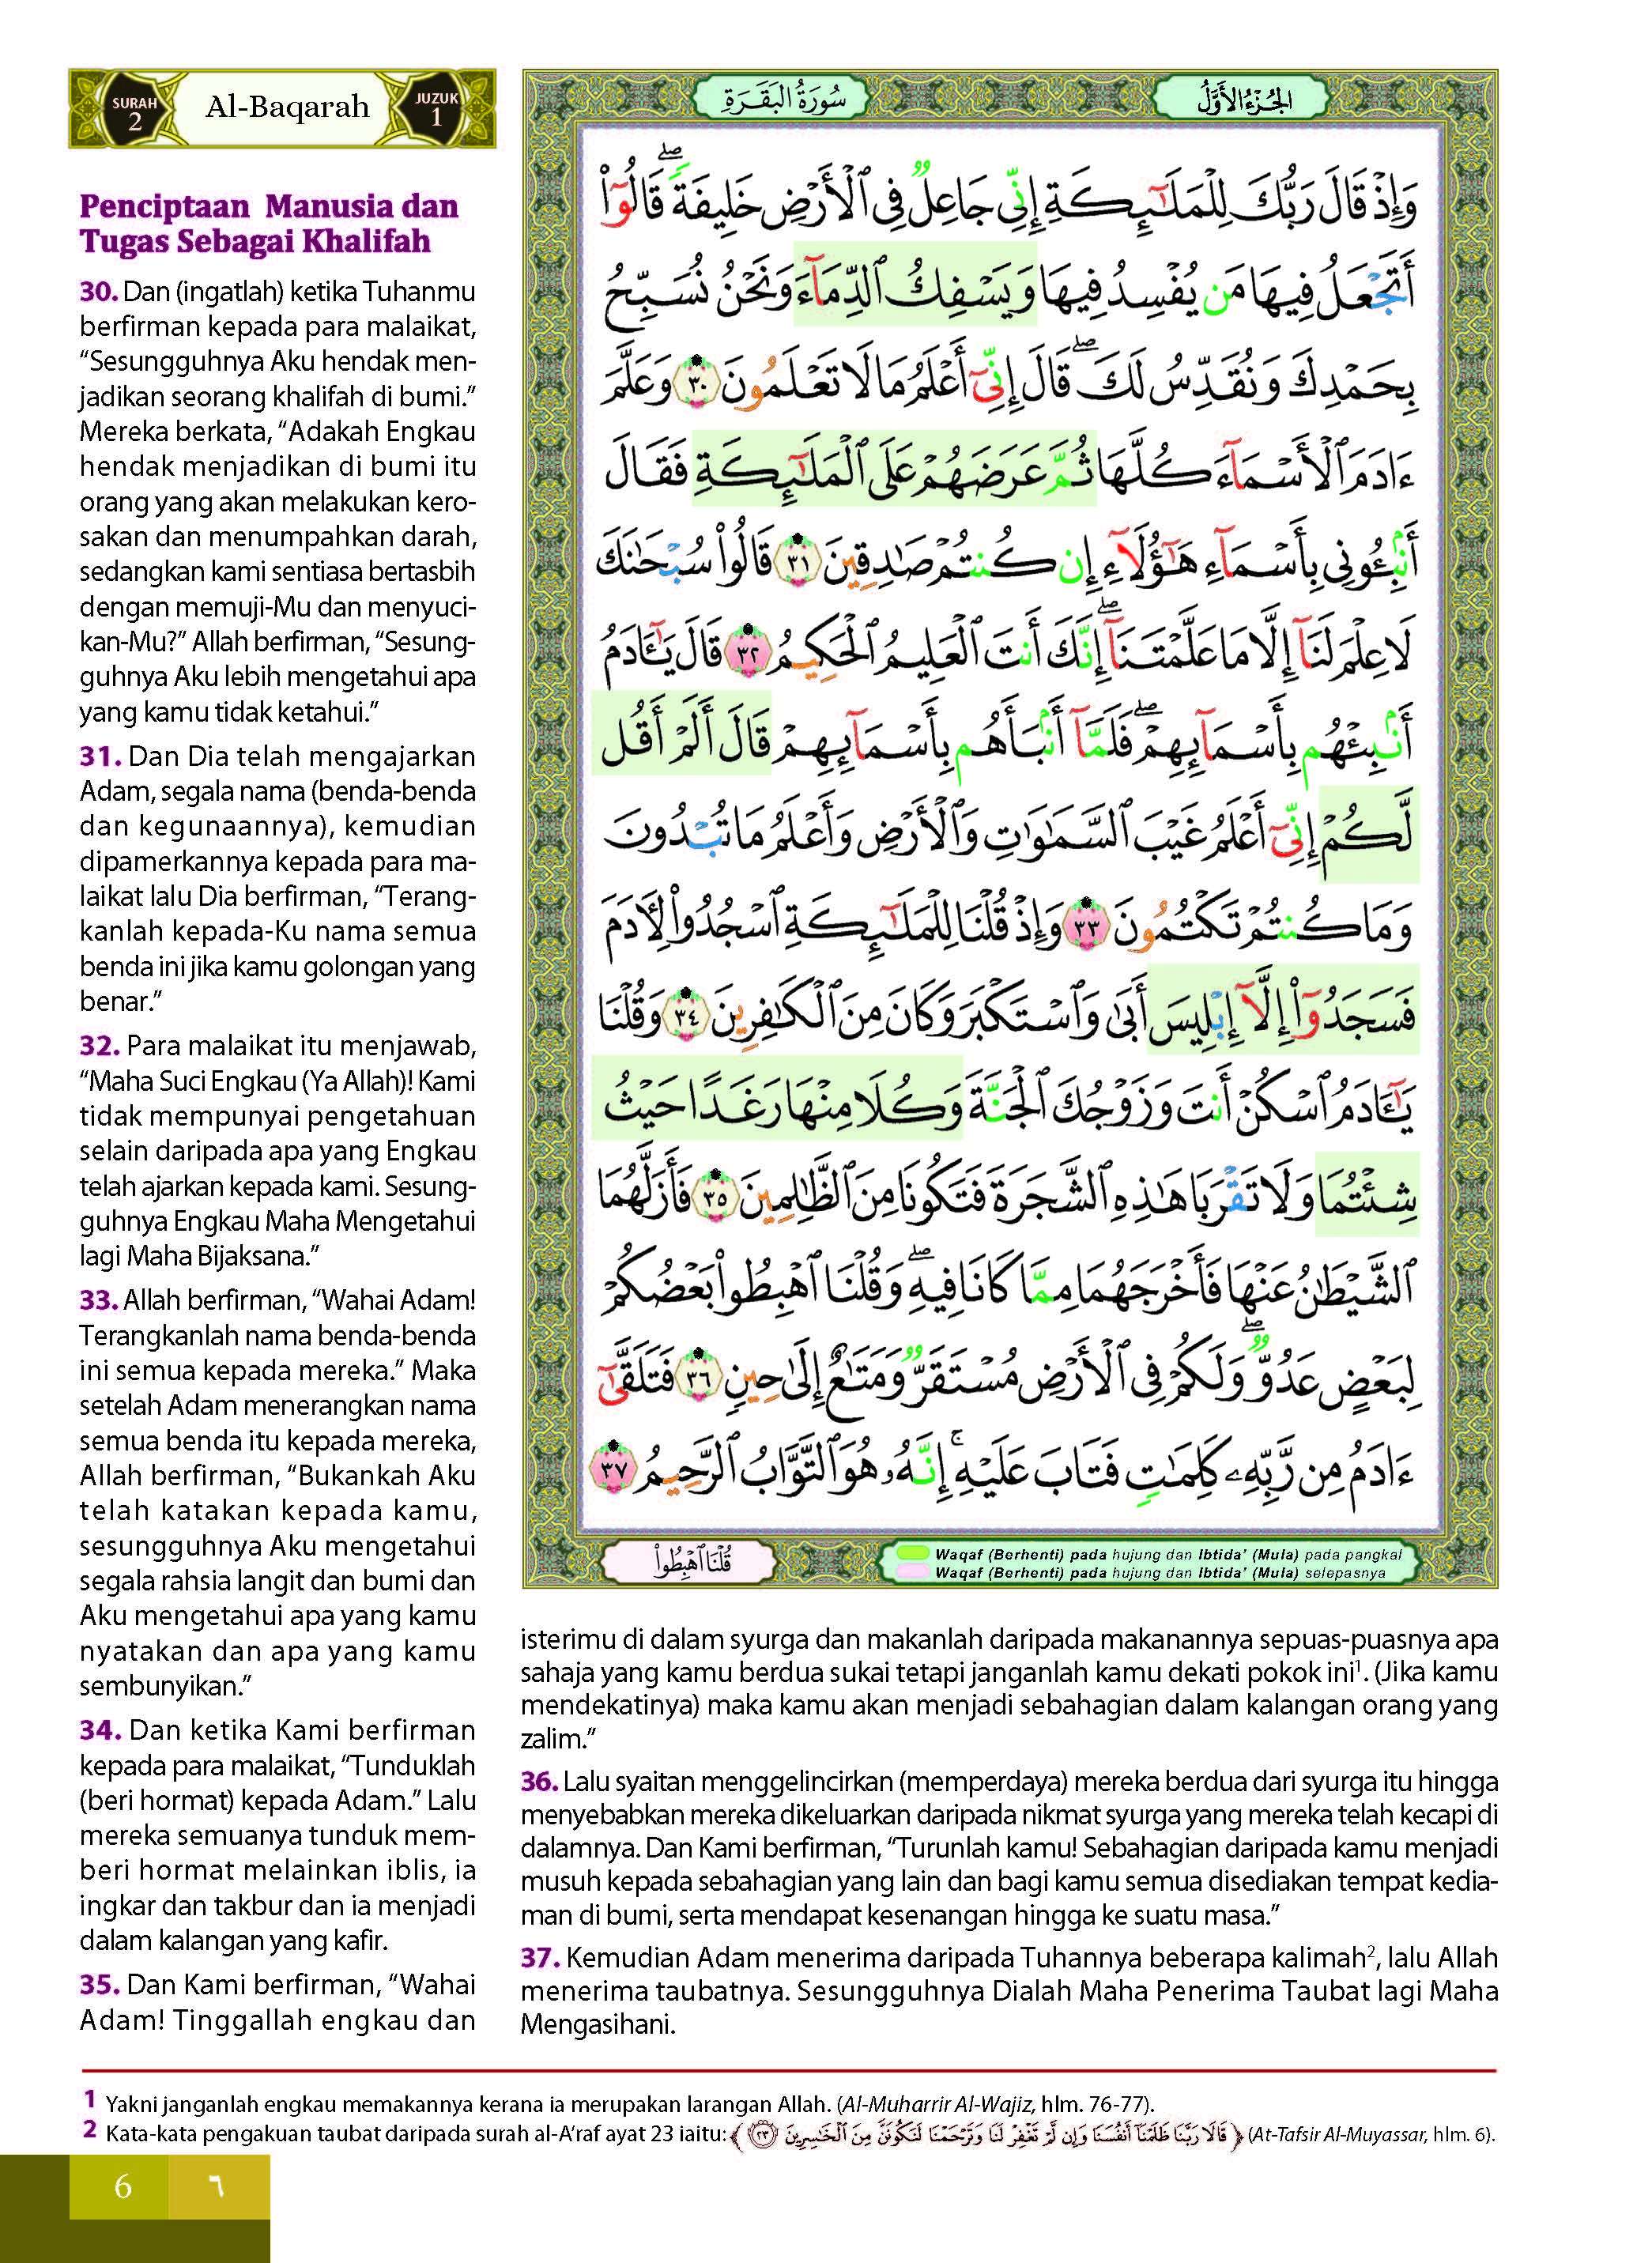 SURAH
2
Al-Baqarah
JUZUK
1
Penciptaan Manusia dan
Tugas Sebagai Khalifah
30. Dan (ingatlah) ketika Tuhanmu
berfirman kepada para malaikat,
“Sesungguhnya Aku hendak men-
jadikan seorang khalifah di bumi.”
Mereka berkata, “Adakah Engkau
hendak menjadikan di bumi itu
orang yang akan melakukan kero-
sakan dan menumpahkan darah,
sedangkan kami sentiasa bertasbih
dengan memuji-Mu dan menyuci-
kan-Mu?” Allah berfirman, “Sesung-
guhnya Aku lebih mengetahui apa
yang kamu tidak ketahui.”
31. Dan Dia telah mengajarkan
Adam, segala nama (benda-benda
dan kegunaannya), kemudian
dipamerkannya kepada para ma-
laikat lalu Dia berfirman, “Terang-
kanlah kepada-Ku nama semua
benda ini jika kamu golongan yang
benar.”
32. Para malaikat itu menjawab,
“Maha Suci Engkau (Ya Allah)! Kami
tidak mempunyai pengetahuan
selain daripada apa yang Engkau
telah ajarkan kepada kami. Sesung-
guhnya Engkau Maha Mengetahui
lagi Maha Bijaksana.”
33. Allah berfirman, “Wahai Adam!
Terangkanlah nama benda-benda
ini semua kepada mereka.” Maka
setelah Adam menerangkan nama
semua benda itu kepada mereka,
Allah berfirman, “Bukankah Aku
telah katakan kepada kamu,
sesungguhnya Aku mengetahui
segala rahsia langit dan bumi dan
Aku mengetahui apa yang kamu
nyatakan dan apa yang kamu
sembunyikan.”
34. Dan ketika Kami berfirman
kepada para malaikat, “Tunduklah
(beri hormat) kepada Adam.” Lalu
mereka semuanya tunduk mem-
beri hormat melainkan iblis, ia
ingkar dan takbur dan ia menjadi
dalam kalangan yang kafir.
35. Dan Kami berfirman, “Wahai
Adam! Tinggallah engkau dan
الجُزْءُ الأَوَّلُ
سُورَةُ البَقَرَةِ
وَإِذْ قَالَ رَبُّكَ لِلْمَلَٰٓئِكَةِ إِنِّى جَاعِلٌ فِى ٱلْأَرْضِ خَلِيفَةً ۖ قَالُوٓا۟
أَتَجْعَلُ فِيهَا مَن يُفْسِدُ فِيهَا وَيَسْفِكُ ٱلدِّمَآءَ وَنَحْنُ نُسَبِّحُ
بِحَمْدِكَ وَنُقَدِّسُ لَكَ ۖ قَالَ إِنِّىٓ أَعْلَمُ مَا لَا تَعْلَمُونَ ٣٠ وَعَلَّمَ
ءَادَمَ ٱلْأَسْمَآءَ كُلَّهَا ثُمَّ عَرَضَهُمْ عَلَى ٱلْمَلَٰٓئِكَةِ فَقَالَ
أَنۢبِـُٔونِى بِأَسْمَآءِ هَٰٓؤُلَآءِ إِن كُنتُمْ صَٰدِقِينَ ٣١ قَالُوا۟ سُبْحَٰنَكَ
لَا عِلْمَ لَنَآ إِلَّا مَا عَلَّمْتَنَآ ۖ إِنَّكَ أَنتَ ٱلْعَلِيمُ ٱلْحَكِيمُ ٣٢ قَالَ يَٰٓـَٔادَمُ
أَنۢبِئْهُم بِأَسْمَآئِهِمْ ۖ فَلَمَّآ أَنۢبَأَهُم بِأَسْمَآئِهِمْ قَالَ أَلَمْ أَقُل
لَّكُمْ إِنِّىٓ أَعْلَمُ غَيْبَ ٱلسَّمَٰوَٰتِ وَٱلْأَرْضِ وَأَعْلَمُ مَا تُبْدُونَ
وَمَا كُنتُمْ تَكْتُمُونَ ٣٣ وَإِذْ قُلْنَا لِلْمَلَٰٓئِكَةِ ٱسْجُدُوا۟ لِءَادَمَ
فَسَجَدُوٓا۟ إِلَّآ إِبْلِيسَ أَبَىٰ وَٱسْتَكْبَرَ وَكَانَ مِنَ ٱلْكَٰفِرِينَ ٣٤ وَقُلْنَا
يَٰٓـَٔادَمُ ٱسْكُنْ أَنتَ وَزَوْجُكَ ٱلْجَنَّةَ وَكُلَا مِنْهَا رَغَدًا حَيْثُ
شِئْتُمَا وَلَا تَقْرَبَا هَٰذِهِ ٱلشَّجَرَةَ فَتَكُونَا مِنَ ٱلظَّٰلِمِينَ ٣٥ فَأَزَلَّهُمَا
ٱلشَّيْطَٰنُ عَنْهَا فَأَخْرَجَهُمَا مِمَّا كَانَا فِيهِ ۖ وَقُلْنَا ٱهْبِطُوا۟ بَعْضُكُمْ
لِبَعْضٍ عَدُوٌّ ۖ وَلَكُمْ فِى ٱلْأَرْضِ مُسْتَقَرٌّ وَمَتَٰعٌ إِلَىٰ حِينٍ ٣٦ فَتَلَقَّىٰٓ
ءَادَمُ مِن رَّبِّهِۦ كَلِمَٰتٍ فَتَابَ عَلَيْهِ ۚ إِنَّهُۥ هُوَ ٱلتَّوَّابُ ٱلرَّحِيمُ ٣٧
قُلْنَا ٱهْبِطُوا۟
Waqaf (Berhenti) pada hujung dan Ibtida’ (Mula) pada pangkal
Waqaf (Berhenti) pada hujung dan Ibtida’ (Mula) selepasnya
isterimu di dalam syurga dan makanlah daripada makanannya sepuas-puasnya apa
sahaja yang kamu berdua sukai tetapi janganlah kamu dekati pokok ini¹. (Jika kamu
mendekatinya) maka kamu akan menjadi sebahagian dalam kalangan orang yang
zalim.”
36. Lalu syaitan menggelincirkan (memperdaya) mereka berdua dari syurga itu hingga
menyebabkan mereka dikeluarkan daripada nikmat syurga yang mereka telah kecapi di
dalamnya. Dan Kami berfirman, “Turunlah kamu! Sebahagian daripada kamu menjadi
musuh kepada sebahagian yang lain dan bagi kamu semua disediakan tempat kedia-
man di bumi, serta mendapat kesenangan hingga ke suatu masa.”
37. Kemudian Adam menerima daripada Tuhannya beberapa kalimah², lalu Allah
menerima taubatnya. Sesungguhnya Dialah Maha Penerima Taubat lagi Maha
Mengasihani.
1 Yakni janganlah engkau memakannya kerana ia merupakan larangan Allah. (Al-Muharrir Al-Wajiz, hlm. 76-77).
2 Kata-kata pengakuan taubat daripada surah al-A’raf ayat 23 iaitu: ﴿ قَالَا رَبَّنَا ظَلَمْنَآ أَنفُسَنَا وَإِن لَّمْ تَغْفِرْ لَنَا وَتَرْحَمْنَا لَنَكُونَنَّ مِنَ ٱلْخَٰسِرِينَ ٢٣ ﴾ (At-Tafsir Al-Muyassar, hlm. 6).
6 ٦